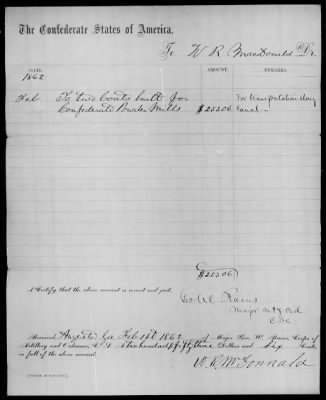 The Confederate States of America,
To W. R. MacDonald Dr.
DATE. AMOUNT. REMARKS.
1862
Feb To two boats built for $253.06 For transportation along
Confederate Powder Mills Canal
$253.06
I Certify that the above account is correct and just.
Geo. W. Rains
Major Art & Ord
C.S.A
Received Augusta Ga Feb 1862 of Major Geo. W. Rains, Corps of
Artillery and Ordnance, C. S. A two hundred & fifty three Dollars and six Cents
in full of the above account.
W. R. McDonnald
(SIGNED DUPLICATES.)